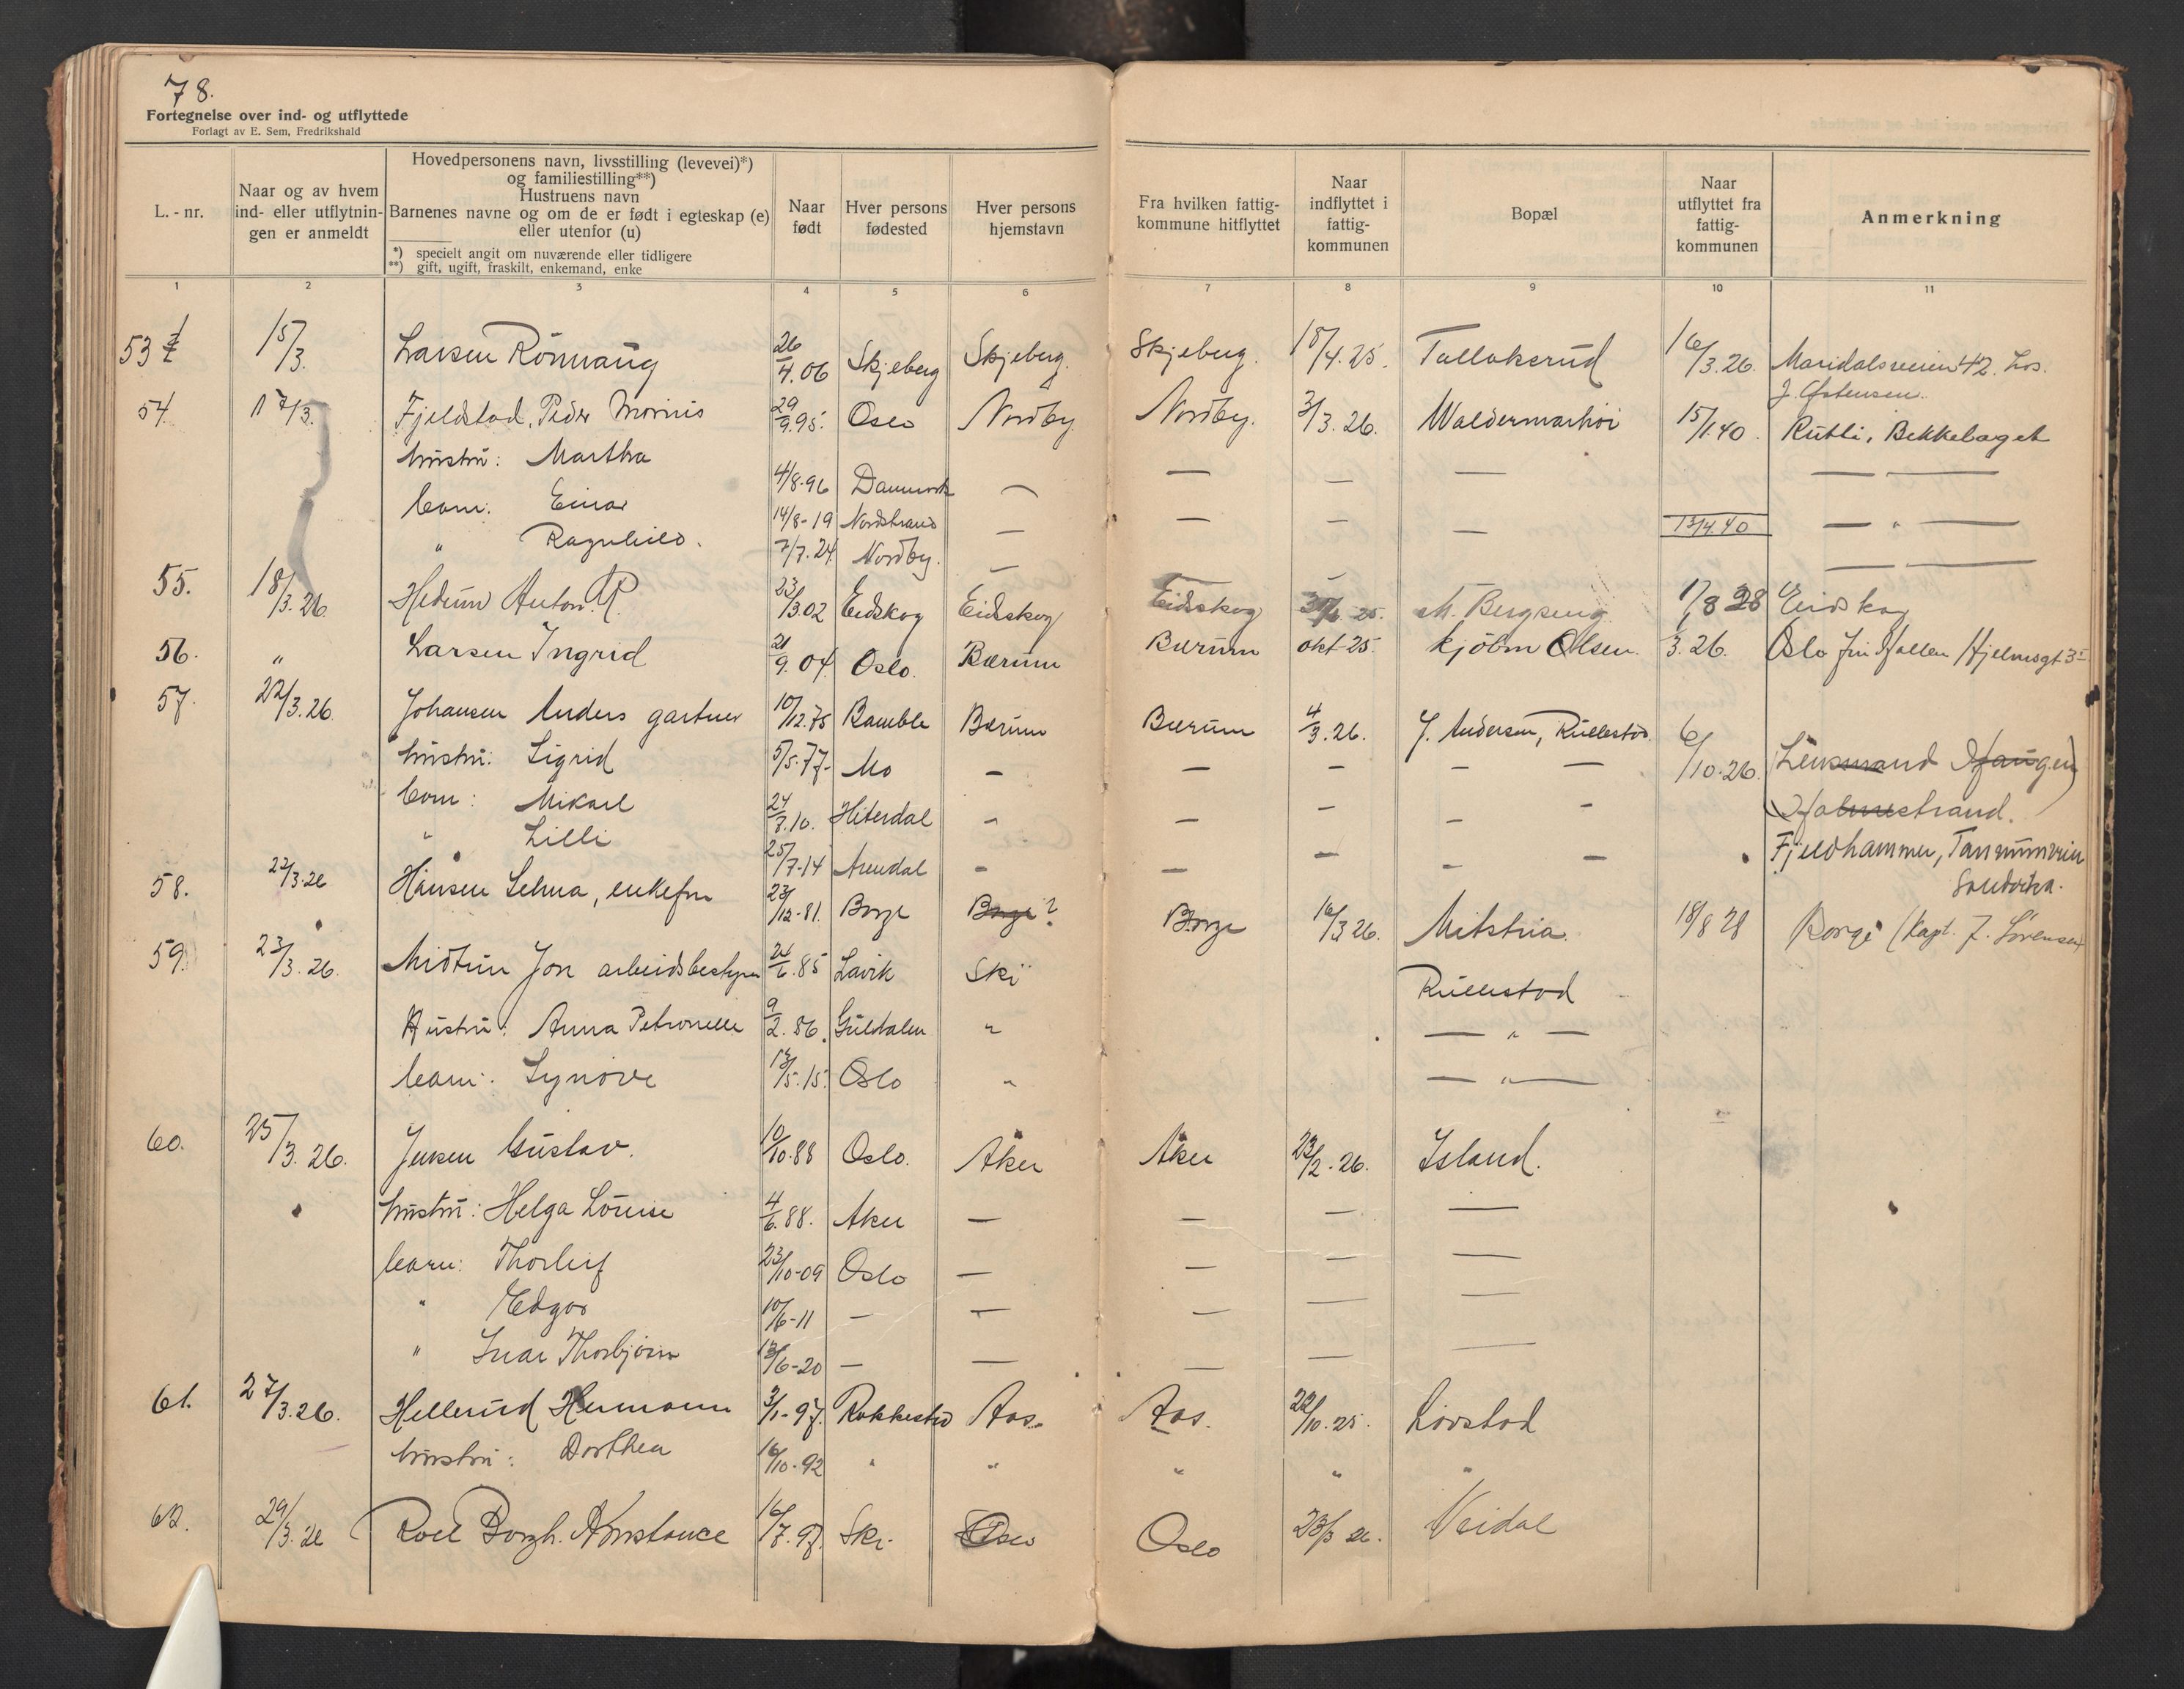 78.
Fortegnelse over ind- og utflyttede
Forlagt av E. Sem, Fredrikshald
L. - nr.
Naar og av hvem ind- eller utflytnin- gen er anmeldt
Hovedpersonens navn, livsstilling (levevei)*)
og familiestilling**)
Hustruens navn
Barnenes navne og om de er født i egteskap (e)
eller utenfor (u)
*) specielt angit om nuværende eller tidligere
**) gift, ugift, fraskilt, enkemand, enke
Naar født
Hver persons fødested
Hver persons hjemstavn
Fra hvilken fattig- kommune hitflyttet
Naar indflyttet i fattig- kommunen
Bopæl
Naar utflyttet fra fattig- kommunen
Anmerkning
1 2 3 4 5 6 7 8 9 10 11
53 15/3. Larsen Rönnaug 26/4.06 Skjeberg Skjeberg. Skjeberg. 18/4.25. Tallakerud 16/3.26. Maridalsveien 42. hos.
J. Østensen.
54. 17/3. Fjeldstad, Peder Morius 29/9.95. Oslo Nordby Nordby. 3/3.26. Waldermarhöi 15/1.40. Rütli, Bekkelaget
hustru: Martha 4/8-96 Danmark — — — — — —
barn: Einar 14/8-19 Nordstrand — — — — 13/4.40 — " —
" Ragnhild. 7/7.24 Nordby. — — — — —
55. 18/3.26. Hedum Anton R. 23/3.02 Eidskog Eidskog Eidskog 25. M. Bergseng. 1/8 28 Eidskog
56. " Larsen Ingrid 21/9.04. Oslo. Bærum Bærum okt-25. kjöbm Olsen. 3.26. Oslo Hjelmsgt 3
57. 22/3.26. Johansen Anders gartner 10/12.75 Bamble Bærum Bærum 4/3.26. J. Andersen, Rullestad. 6/10.26. (Lensmand Haugen)
hustru: Sigrid 5/5.77. Mo — — — — —
barn: Mikael 24/8.10. Hiterdal — — — — — Holmestrand.
" Lilli 25/7-14 Arendal — — — — — Fjeldhammer,
Sandvika.
58. 22/3.26 Hansen Selma, enkefru 23/12-81. Borge Borge? Borge 16/3 26. Mitstria. 18/8 28 Borge (Kapt. J. Sörensen)
59. 23/3.26. Midtun Jon arbeidsbestyrer 24/6.85 Lavik Ski Rullestad
Hustru: Anna Petronelle 9/2.86. Guldalen " — " —
barn: Synöve 13/5.15. Oslo " — " —
60. 25/3.26. Jensen Gustav. 10/10.88 Oslo. Aker Aker 23/2.26. Island.
hustru: Helga Louise 4/6.88. Aker — — — —
barn: Thorleif 23/10-09 Oslo — — — —
" Edgar 10/6-11 — — — — —
" Ivar Thorbjörn 13/6-20 — — — — —
61. 27/3.26. Hellerud Hermann 3/1-97. Rakkestad Aas. Aas. 22/10.25. Lövstad
hustru: Dorthea 16/10-92 " " " " "
62. 29/3.26 Roel Borgh. Konstance 16/7.97. Ski. Oslo Oslo 23/3 26. Veidal